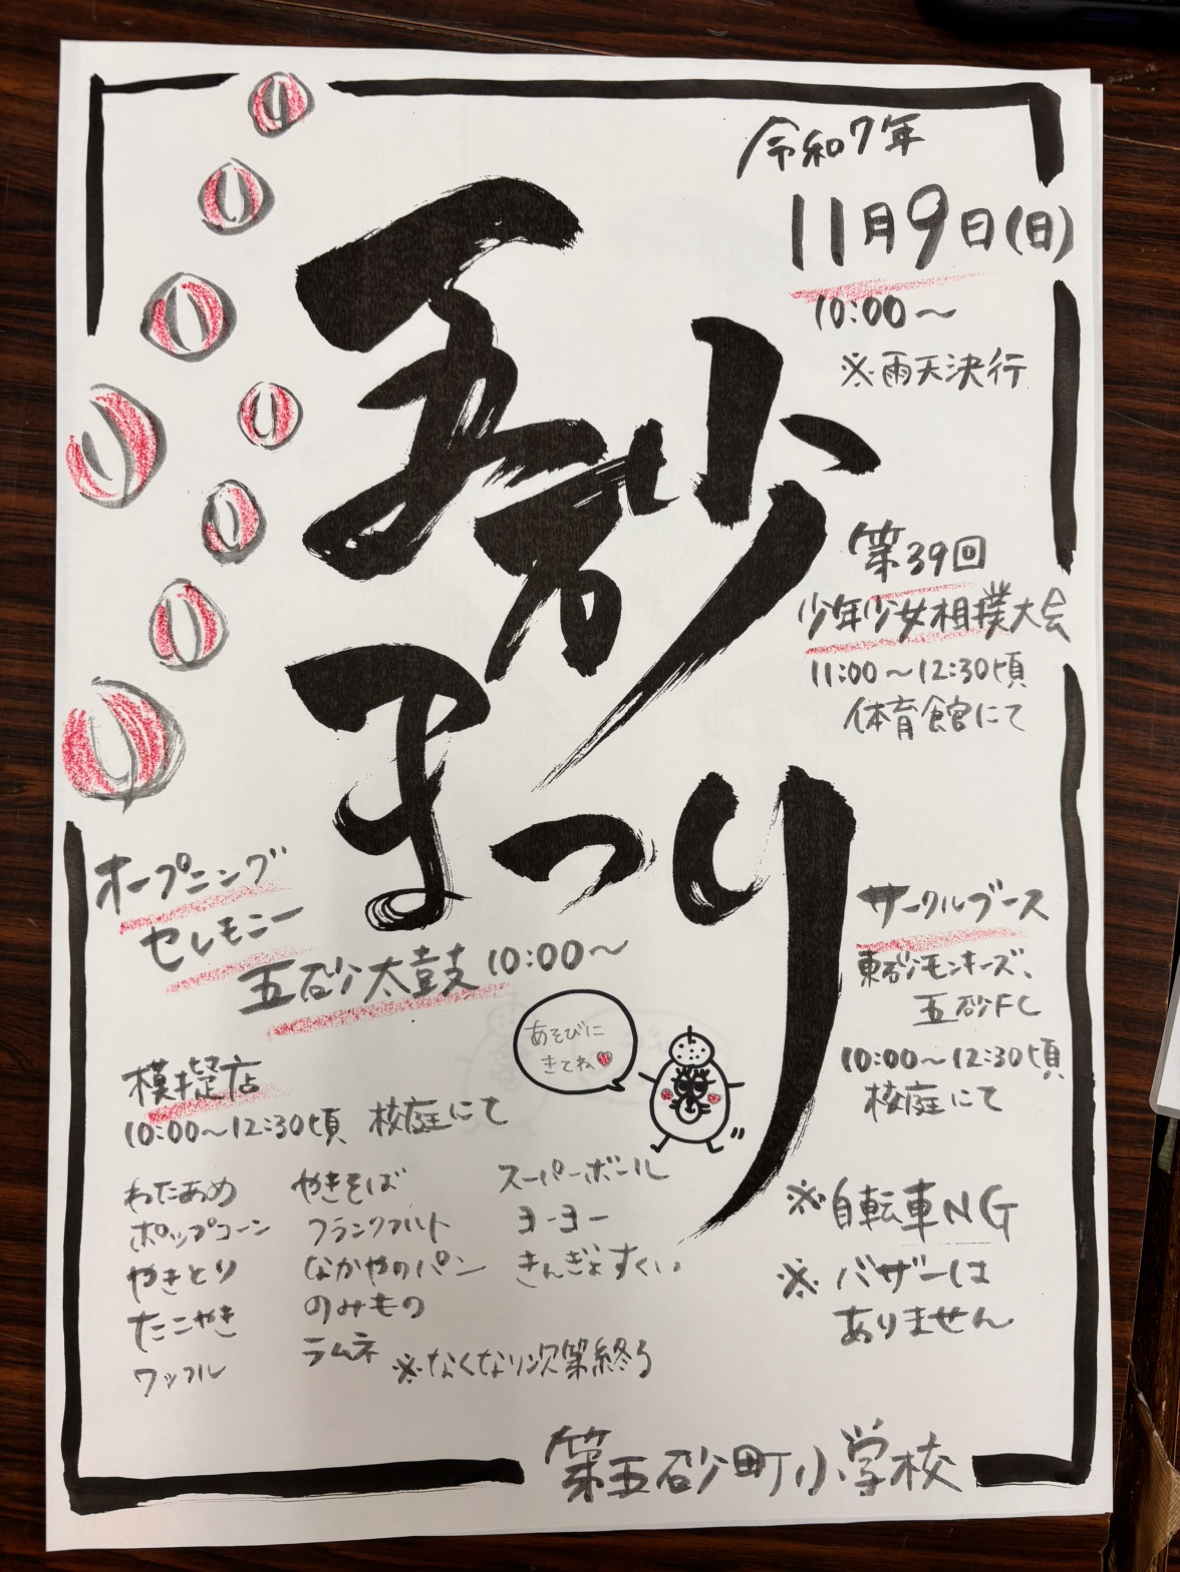 令和7年
11月9日(日)
10:00〜
※雨天決行
五砂
まつり
第39回
少年少女相撲大会
11:00〜12:30頃
体育館にて
オープニング
セレモニー
五砂太鼓 10:00〜
サークルブース
東砂モンキーズ、
五砂FC
10:00〜12:30頃
校庭にて
あそびに
きてね
模擬店
10:00〜12:30頃 校庭にて
わたあめ
ポップコーン
やきとり
たこやき
ワッフル
やきそば
フランクフルト
なかやのパン
のみもの
ラムネ
スーパーボール
ヨーヨー
きんぎょすくい
※なくなり次第終了
※自転車NG
※バザーは
ありません
第五砂町小学校